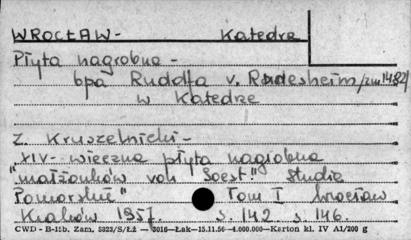 WROCŁAW - Katedra
Płyta nagrobna -
bpa Rudolfa v. Rudesheim /zm 1482/
w Katedrze
Z. Kruszelnicki -
"XIV- wieczna płyta nagrobna
"małżonków von Soest" Studia
Pomorskie" Tom I Wrocław
Kraków 1957. s. 142 s. 146.
CWD - B-11b. Zam. 5323/S/Łż — 3016—Łak—15.11.56 —4.000.000—Karton kl. IV A1/200 g